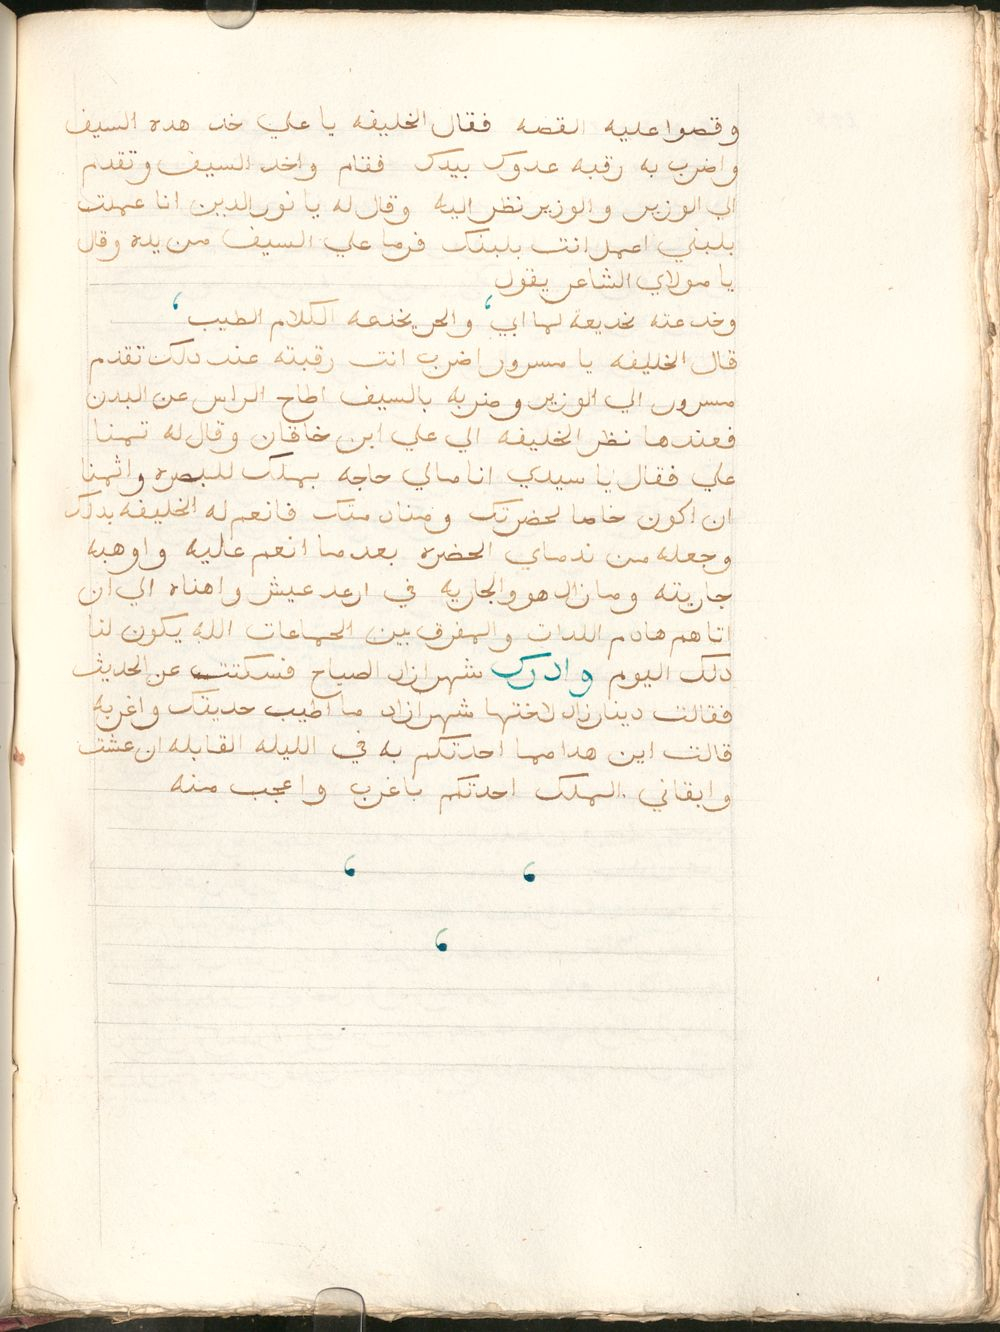 وقصوا عليه القصه فقال الخليفه يا علي خد هده السيف
واضرب به رقبه عدوك بيدك فقام واخد السيف وتقدم
الي الوزير والوزير نظر اليه وقال له يا نور الدين انا عملت
بلبني اعمل انت بلبنك فرما علي السيف من يده وقال
يا مولاي الشاعر يقول
وخدعته بخديعة لما ابي، والحر يخدعه الكلام الطيب،
قال الخليفه يا مسرور اضرب انت رقبته عند دلك تقدم
مسرور الي الوزير وضربه بالسيف اطاح الراس عن البدن
فعندها نظر الخليفه الي علي ابن خاقان وقال له تمنا
علي فقال يا سيدي انا مالي حاجه بملك للبصره واتمنا
ان اكون خاما لحضرتك ومنادمتك فانعم له الخليفه بدلك
وجعله من ندماي الحضره بعد ما انعم عليه واوهبه
جاريته وما زال هو والجاريه في ارعد عيش واهناه الي ان
اتاهم هادم اللدات والمفرق بين الجماعات الله يكون لنا
دلك اليوم وادرك شهرازاد الصباح فسكتت عن الحديث
فقالت دينارزاد لاختها شهرازاد ما اطيب حديتك واغربه
قالت اين هدا مما احدتكم به في الليله القابله ان عشت
وابقاني الملك احدتكم باغرب واعجب منه